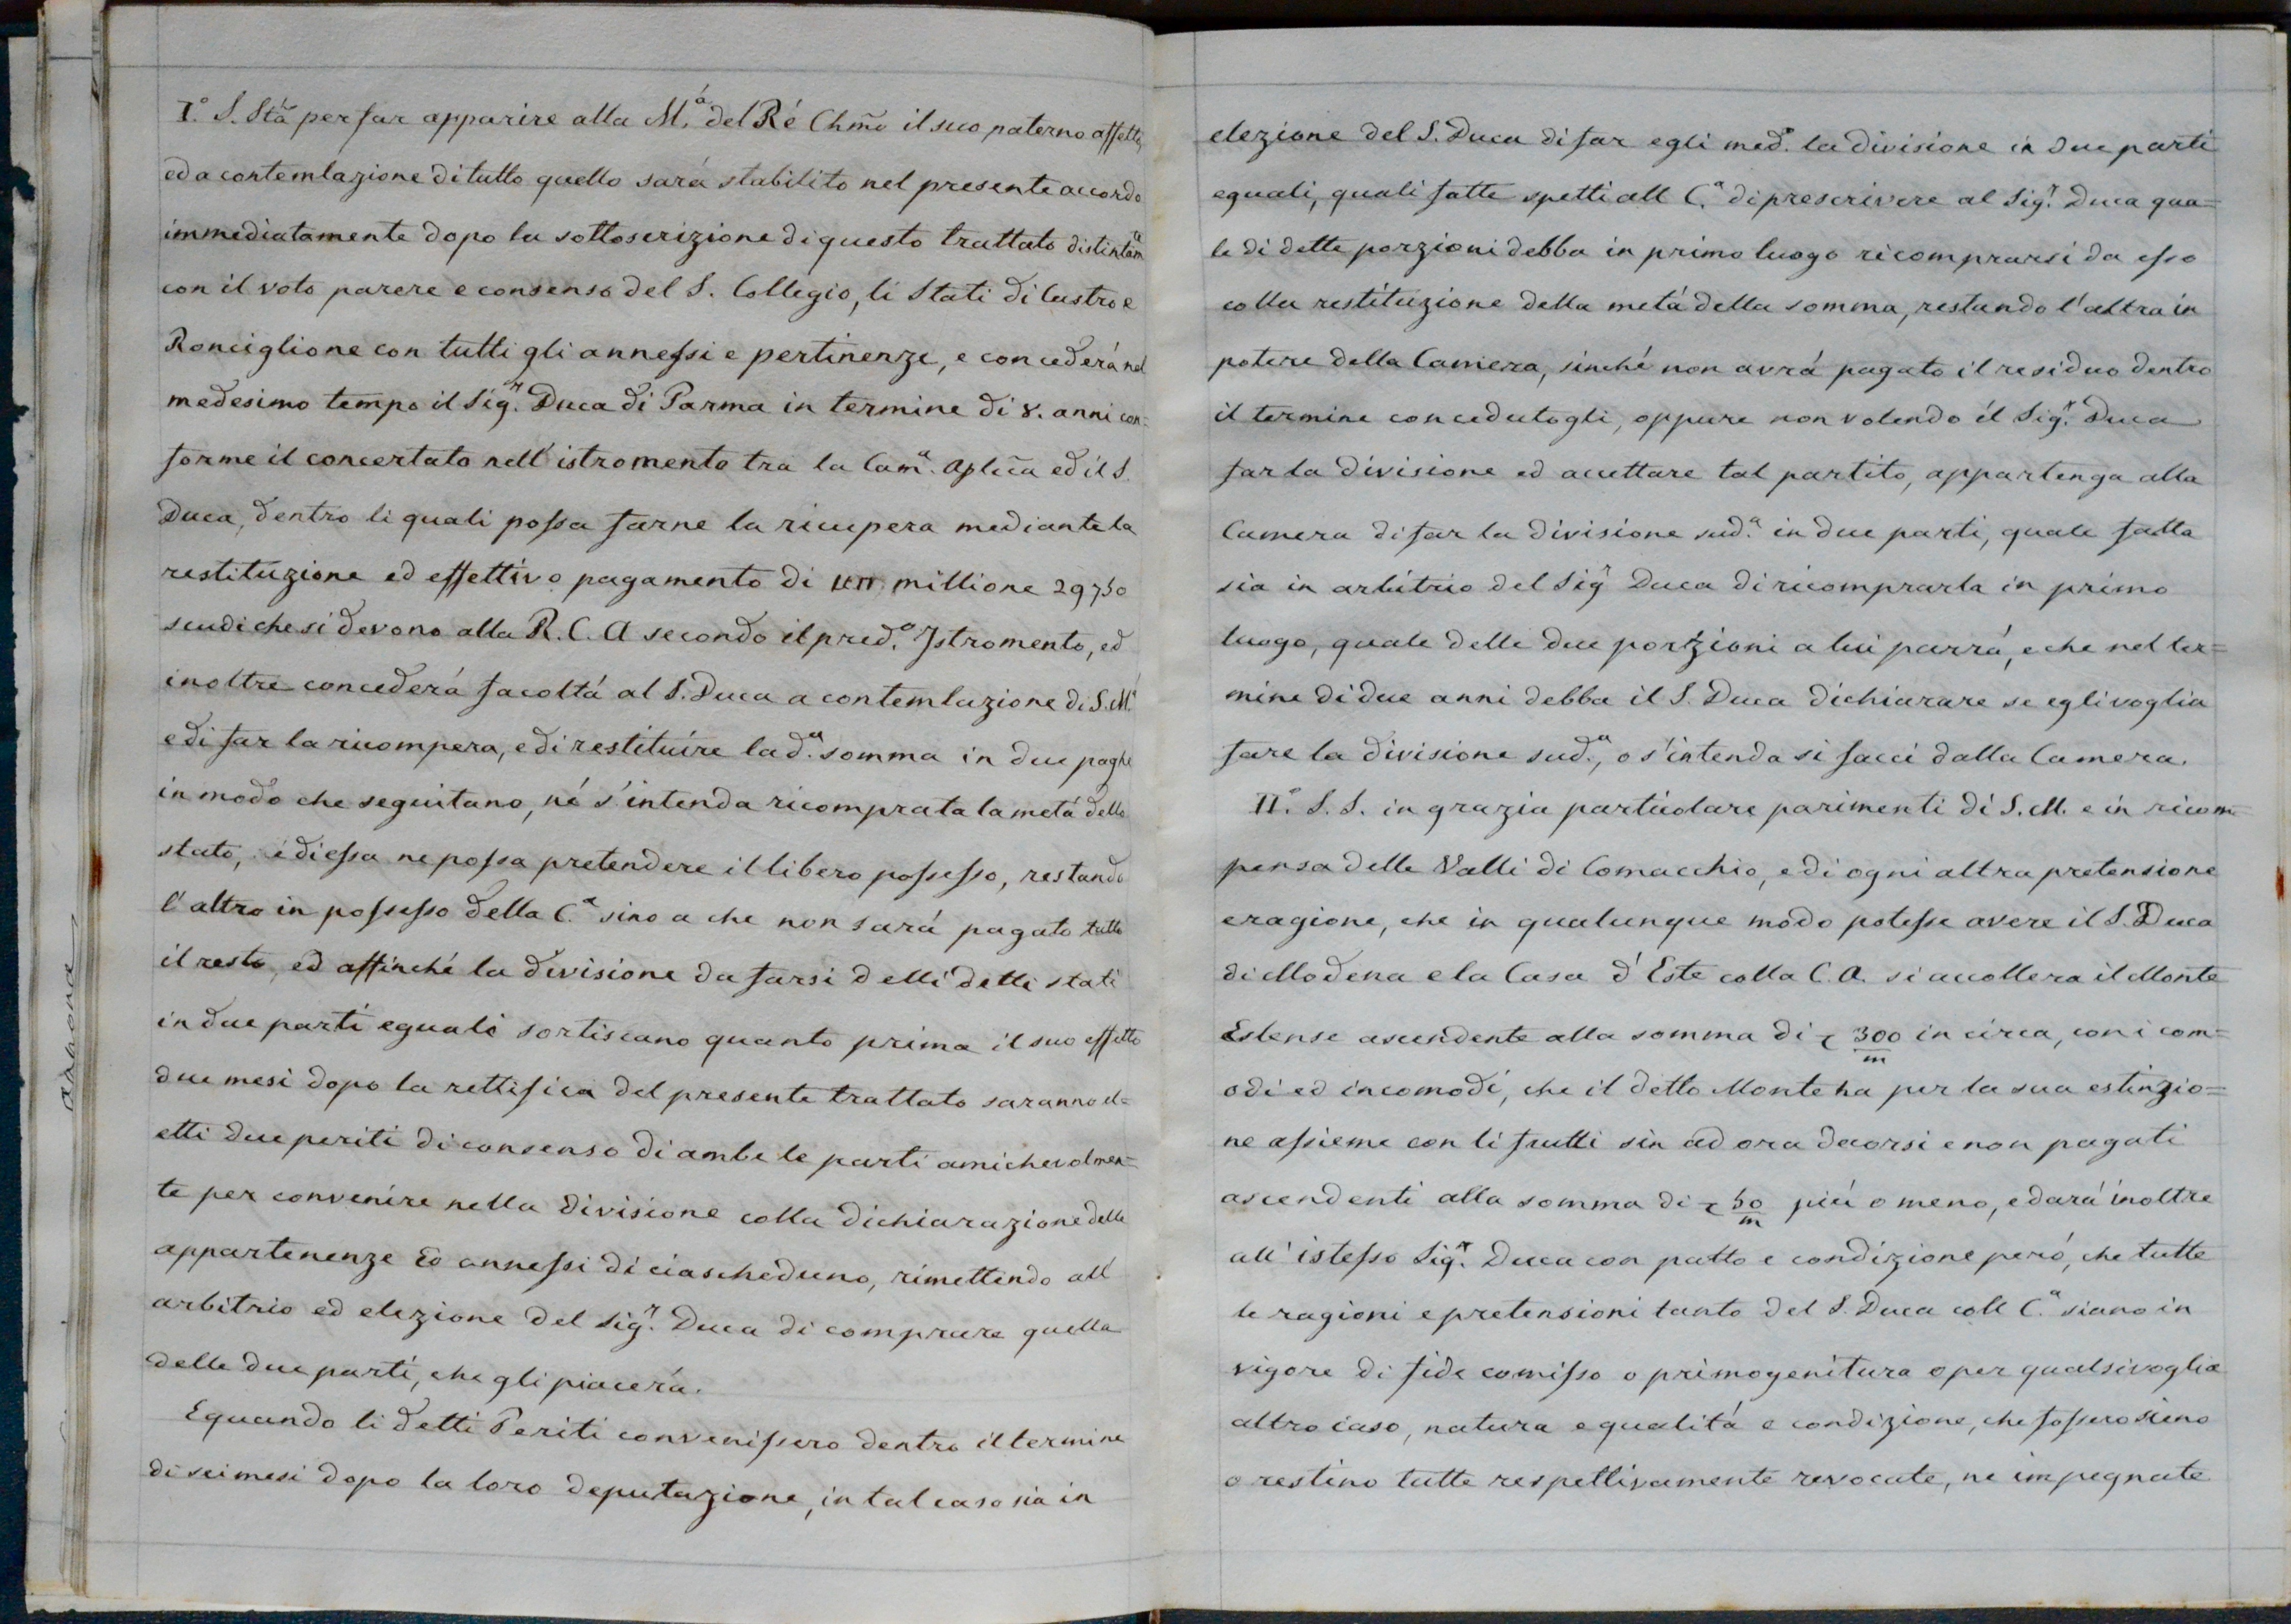 I.° S. Stã per far apparire alla M.á del Ré Chmõ il suo paterno affetto,
ed a contemlazione di tutto quello sará stabilito nel presente accordo
immediatamente dopo la sottoscrizione di questo trattato distintãm
con il voto parere e consenso del S. Collegio, li Stati di Castro e
Ronciglione con tutti gli annessi e pertinenze, e concederá nel
medesimo tempo il Sig.r Duca di Parma in termine di 8. anni con=
forme il concertato nell' istromento tra la Cam.a Aplica ed il S.
Duca, dentro li quali possa farne la ricupera mediante la
restituzione ed effettivo pagamento di un millione 29750
scudi che si devono alla R. C. A secondo il pred.o Istromento, ed
inoltre concederá facoltá al S. Duca a contemlazione di S. M.á
e di far la ricompera, e di restituire la d.a somma in due paghe
in modo che seguitano, né s'intenda ricomprata la metá dello
stato, é di essa ne possa pretendere il libero possesso, restando
l'altro in possesso della C.a sino a che non sará pagato tutto
il resto, ed affinché la divisione da farsi delli detti stati
in due parti eguali sortiscano quanto prima il suo effetto
due mesi dopo la rettifica del presente trattato saranno el=
etti due periti di consenso di ambe le parti amichevolmen=
te per convenire nella divisione colla dichiarazione delle
appartenenze ed annessi di ciascheduno, rimettendo all'
arbitrio ed elezione del Sig.r Duca di comprare quella
delle due parti, che gli piacerá.
E quando li detti Periti convenissero dentro il termine
di sei mesi dopo la loro deputazione, in tal caso sia in
elezione del S. Duca di far egli med.o la divisione in due parti
eguali, quali fatte spetti all C.a di prescrivere al Sig.r Duca qua=
le di dette porzioni debba in primo luogo ricomprarsi da esso
colla restituzione della metá della somma, restando l'altra in
potere della Camera, sinché non avrá pagato il residuo dentro
il termine concedutogli, oppure non volendo il Sig.r Duca
far la divisione ed accettare tal partito, appartenga alla
Camera di far la divisione sud.a in due parti, quale fatta
sia in arbitrio del Sig.r Duca di ricomprarla in primo
luogo, quale delle due porzioni a lui parrá, e che nel ter=
mine di due anni debba il S. Duca dichiarare se egli voglia
fare la divisione sud.a, o s'intenda si facci dalla Camera.
II.° S. S. in grazia particolare parimenti di S. M. e in ricom=
pensa delle Valli di Comacchio, e di ogni altra pretensione
e ragione, che in qualunque modo potesse avere il S. Duca
di Modena e la Casa d'Este colla C. A. si accollera il Monte
Estense ascendente alla somma di 300/m in circa, con i com=
odi ed incomodi, che il detto Monte ha per la sua estinzio=
ne assieme con li frutti sin ad ora decorsi e non pagati
ascendenti alla somma di 50/m piú o meno, e dará inoltre
all' istesso Sig.r Duca con patto e condizione peró, che tutte
le ragioni e pretensioni tanto del S. Duca coll C.a siano in
vigore di fide comisso o primogenitura o per qualsivoglia
altro caso, natura e qualitá e condizione, che fossero sieno
o restino tutte respettivamente revocate, ne impegnate